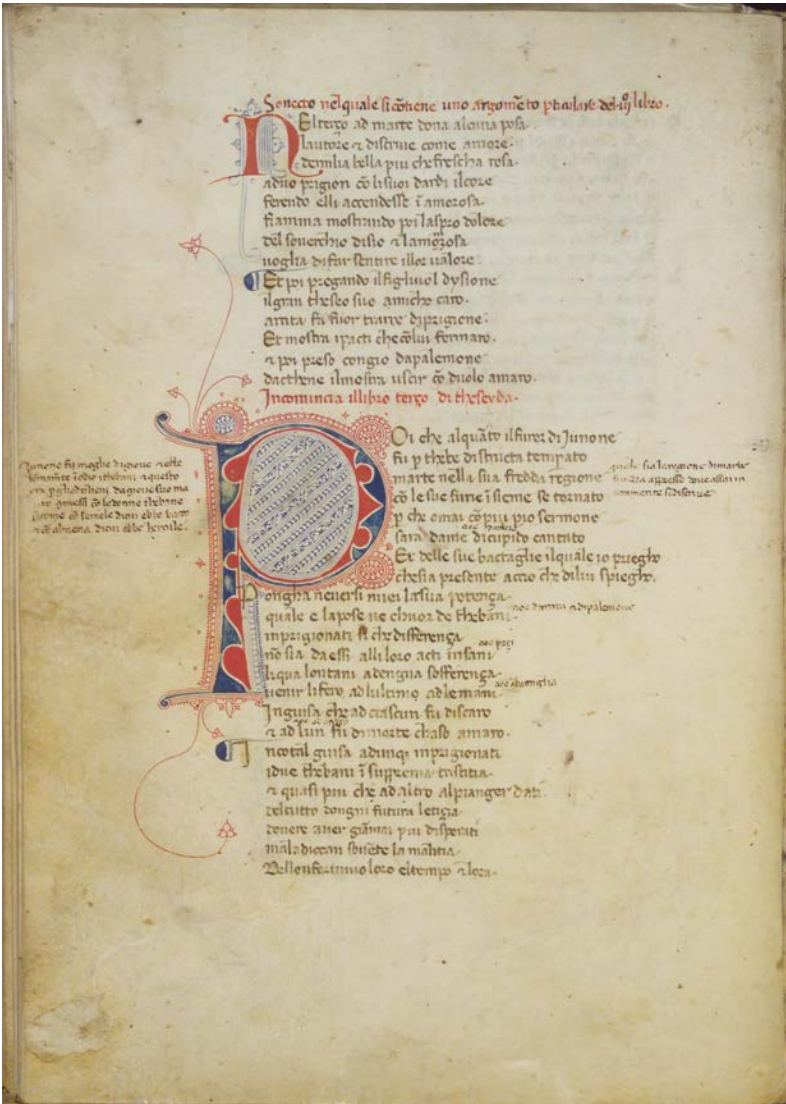 Sonecto nel quale si cõtiene uno argomẽto pticulare del iijº libro.
NEl terço ad marte dona alcuna posa.
lautore ⁊ discrive come amore.
demilia bella piu che frescha rosa.
aduo prigion cõ li suoi dardi il core
ferendo elli accendesse ĩ amorosa.
fiamma mostrando poi laspro dolore
del soverchio disio ⁊ lamorosa
voglia di far sentire illor valore.
Et poi pregando il figluiol dysione
il gran theseo suo amicho caro.
arcita fa fuor trarre di prigione.
Et mostra i pacti che cõ lui fermaro.
⁊ poi preso congio da palemone
dacthene il mostra uscir cõ duolo amaro.
Incomincia il libro terço di theseyda.
POi che alquãto il furor di Junone
fu p thebe distructa temperato
marte nella sua fredda regione
cõ le sue furie ĩsieme se tornato
p che omai cõ piu pio sermone
sara da me di cupido cantato
Et delle sue bactaglie il quale io priegho
che sia presente accio che di lui spiegho.
Ponga ne versi miei la sua potença.
quale e la pose ne chuor de thebani.
inprigionati che differença
nõ sia da essi alli loro acti insani
li qua lontani a degna sofferença.
venir li fero, ad lultimo ad le mani.
In guisa che ad ciascun fu discaro
⁊ ad lun fu di morte chaso amaro.
In cotal guisa adunq inprigionati
i due thebani ĩ suppema tristitia.
⁊ quasi piu che ad altro al pianger dati
del tutto dongni futura letiçia.
dovere aver giãmai piu disperati
maladicean sovẽte la malitia.
Dell infortunio loro el tempo ⁊ lora.
Junone fu moglie di giove ⁊ ebbe
cõ semele di cui ebbe bacco
⁊ cõ almena di cui ebbe hercule.
quale sia la regione di marte
si mostra apresso dove assai
si discrive
cioe darcita ⁊ di palemone